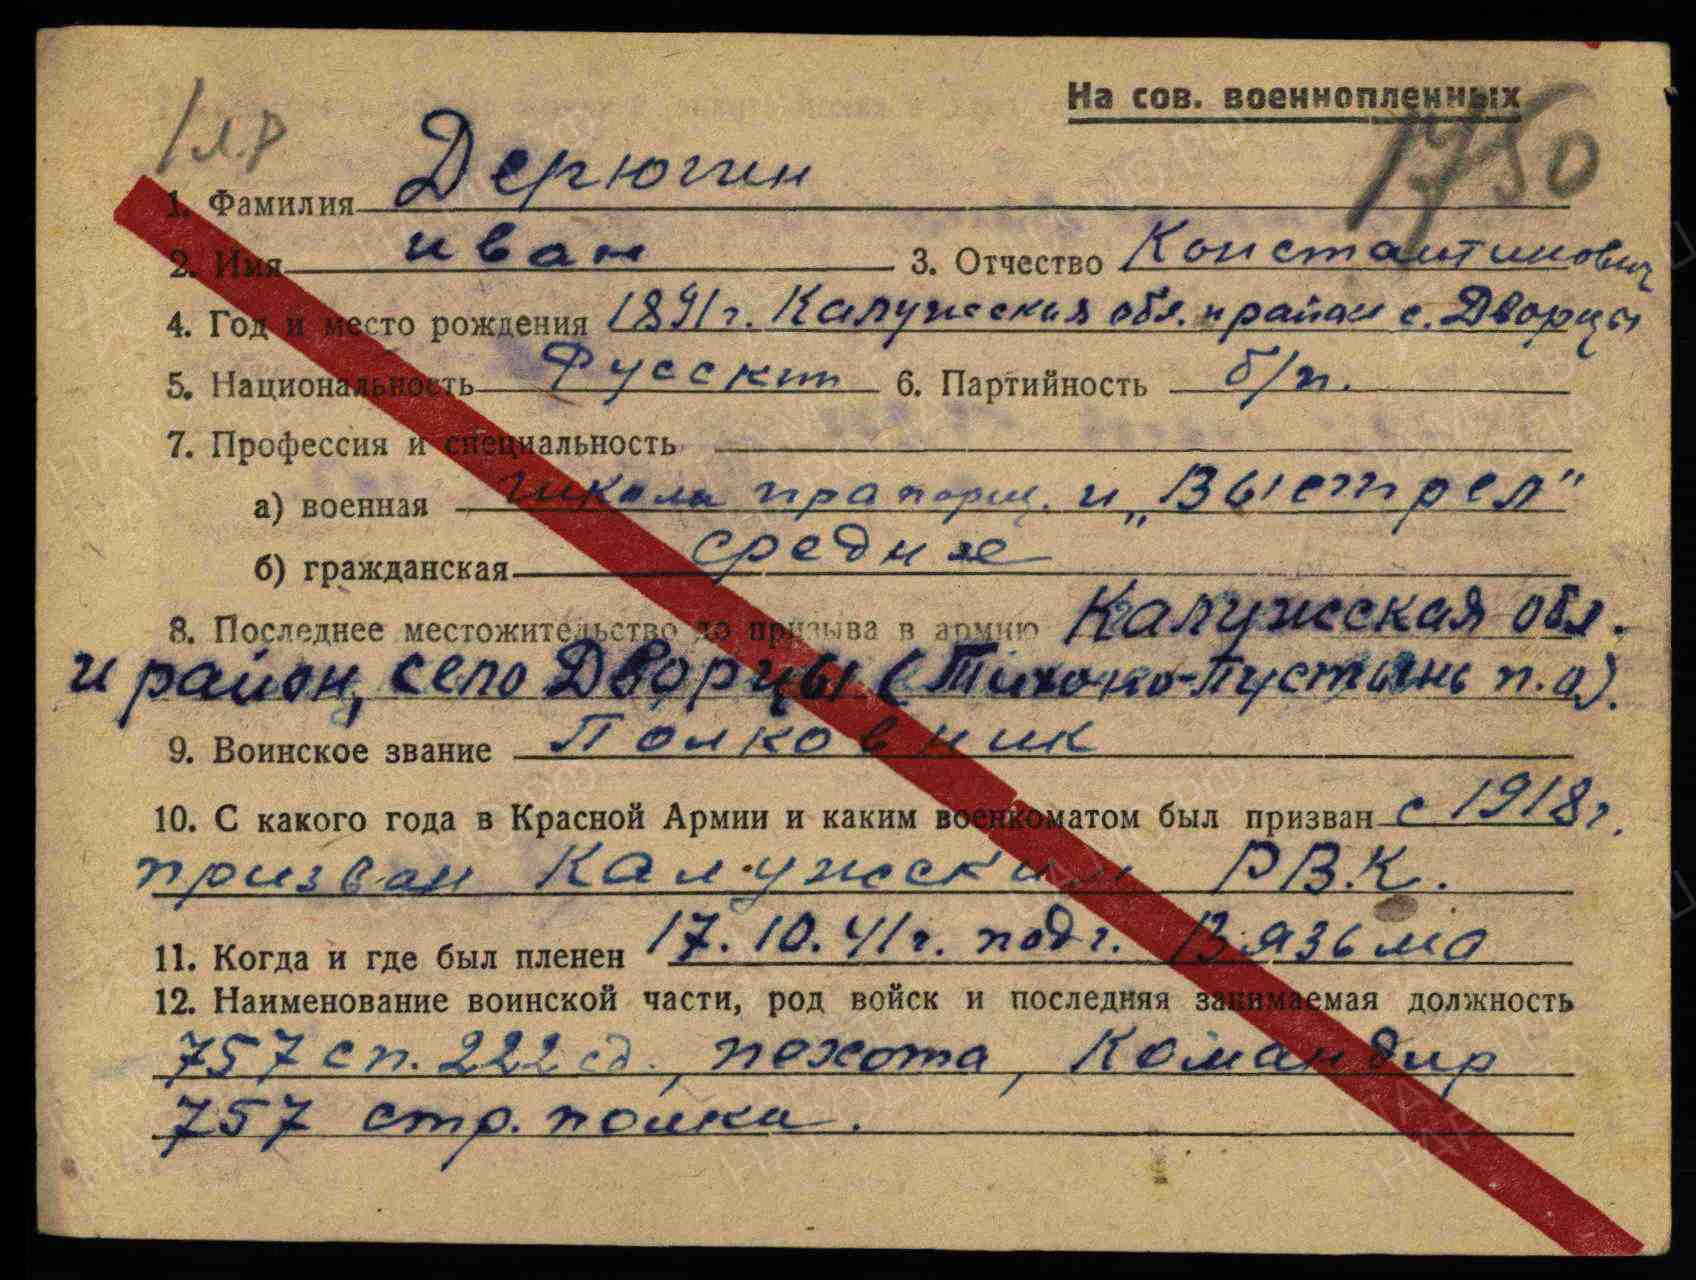 На сов. военнопленных
1750
1. Фамилия Дерюгин
2. Имя Иван 3. Отчество Константинович
4. Год и место рождения 1891 г. Калужская обл. и район с. Дворцы
5. Национальность Русский 6. Партийность б/п.
7. Профессия и специальность
а) военная школа прапорщ. и „Выстрел"
б) гражданская среднее
8. Последнее местожительство до призыва в армию Калужская обл.
и район, село Дворцы (Тихоно-Пустынь п.о).
9. Воинское звание Полковник
10. С какого года в Красной Армии и каким военкоматом был призван с 1918 г.
призван Калужским Р.В.К.
11. Когда и где был пленен 17.10.41 г. под г. Вязьма
12. Наименование воинской части, род войск и последняя занимаемая должность
757 сп. 222 сд., пехота, Командир
757 стр. полка.